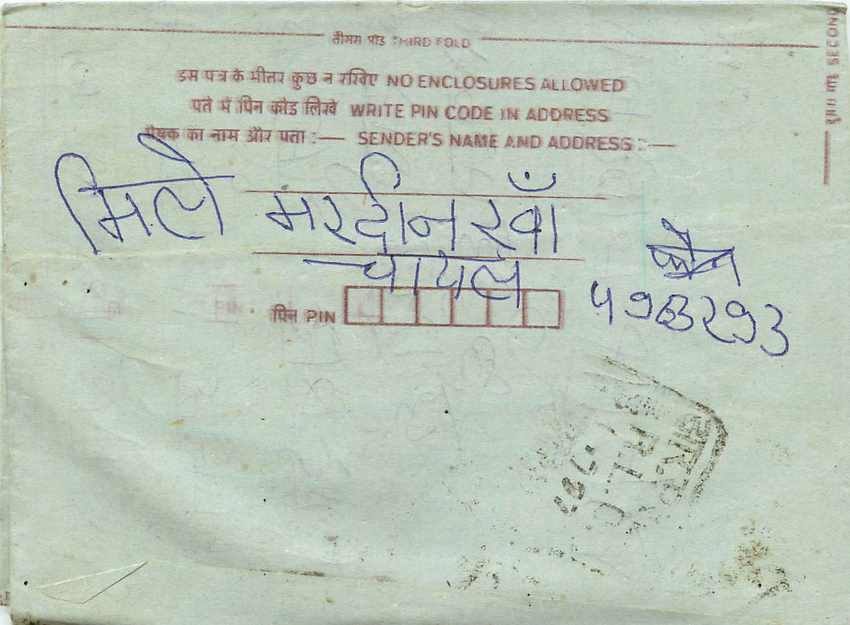 तीसरा मोड़ THIRD FOLD
इस पत्र के भीतर कुछ न रखिए NO ENCLOSURES ALLOWED
पते में पिन कोड लिखें WRITE PIN CODE IN ADDRESS
प्रेषक का नाम और पता :— SENDER'S NAME AND ADDRESS :—
मिले मरदीन खाँ
चायल
फोन
पिन PIN
R.L.O
SECOND